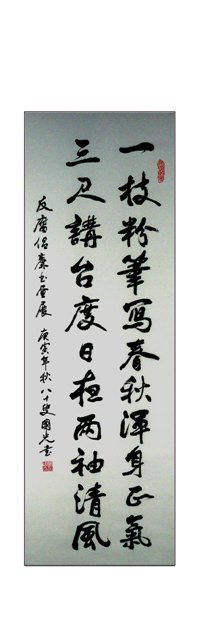 一枝粉筆寫春秋渾身正氣
三尺講台度日夜两袖清風
反腐倡廉书画展 庚寅年秋八十叟國光书